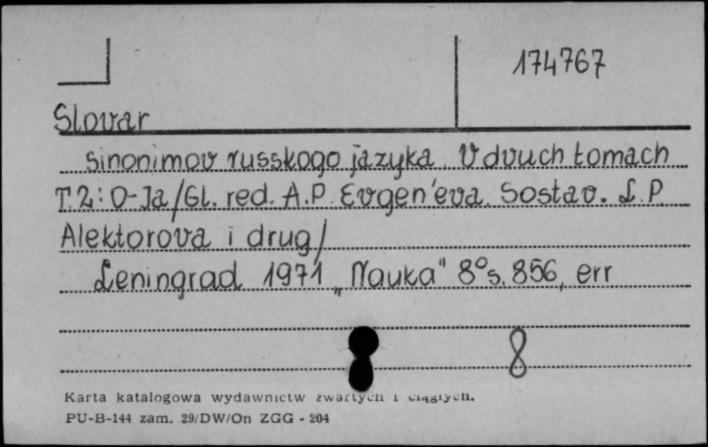 174767
Slovar
sinonimov russkogo jazyka. V dvuch tomach
T.2: O-Ja/Gl. red. A.P. Evgen'eva. Sostav. L.P.
Alektorova i drug/
Leningrad 1971 „Nauka" 8°s. 856, err
8
Karta katalogowa wydawnictw zwartych i ciągłych.
PU-B-144 zam. 29/DW/On ZGG - 204